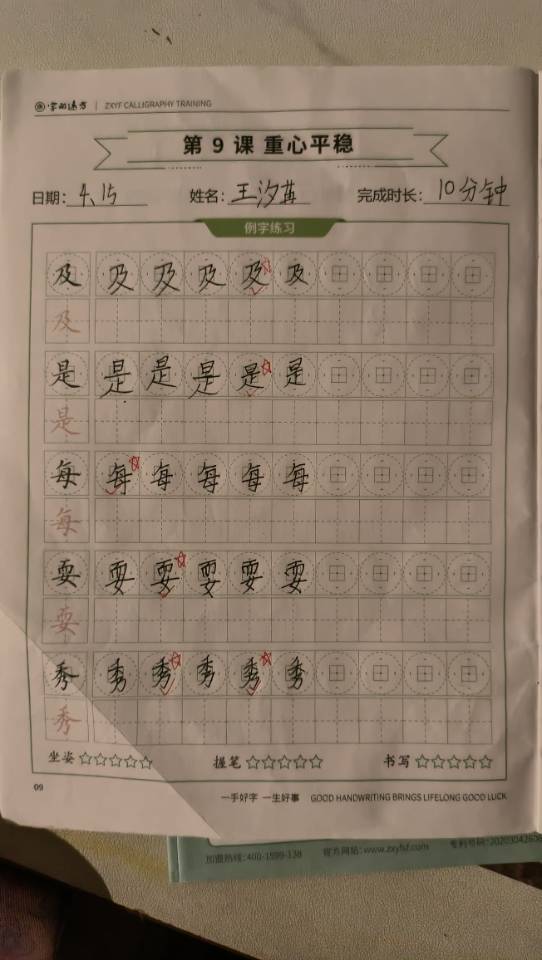 字有缘方 ZXYF CALLIGRAPHY TRAINING
第 9 课 重心平稳
日期: 4、15 姓名: 王汐苒 完成时长: 10分钟
例字练习
及 及 及 及 及 及
及
是 是 是 是 是 是
是
每 每 每 每 每 每
每
耍 耍 耍 耍 耍 耍
耍
秀 秀 秀 秀 秀 秀
秀
坐姿 ☆☆☆☆☆ 握笔 ☆☆☆☆☆ 书写 ☆☆☆☆☆
09
一手好字 一生好事 GOOD HANDWRITING BRINGS LIFELONG GOOD LUCK
加盟热线: 400-1599-138 官方网站: www.zxyfsf.com 专利号码: